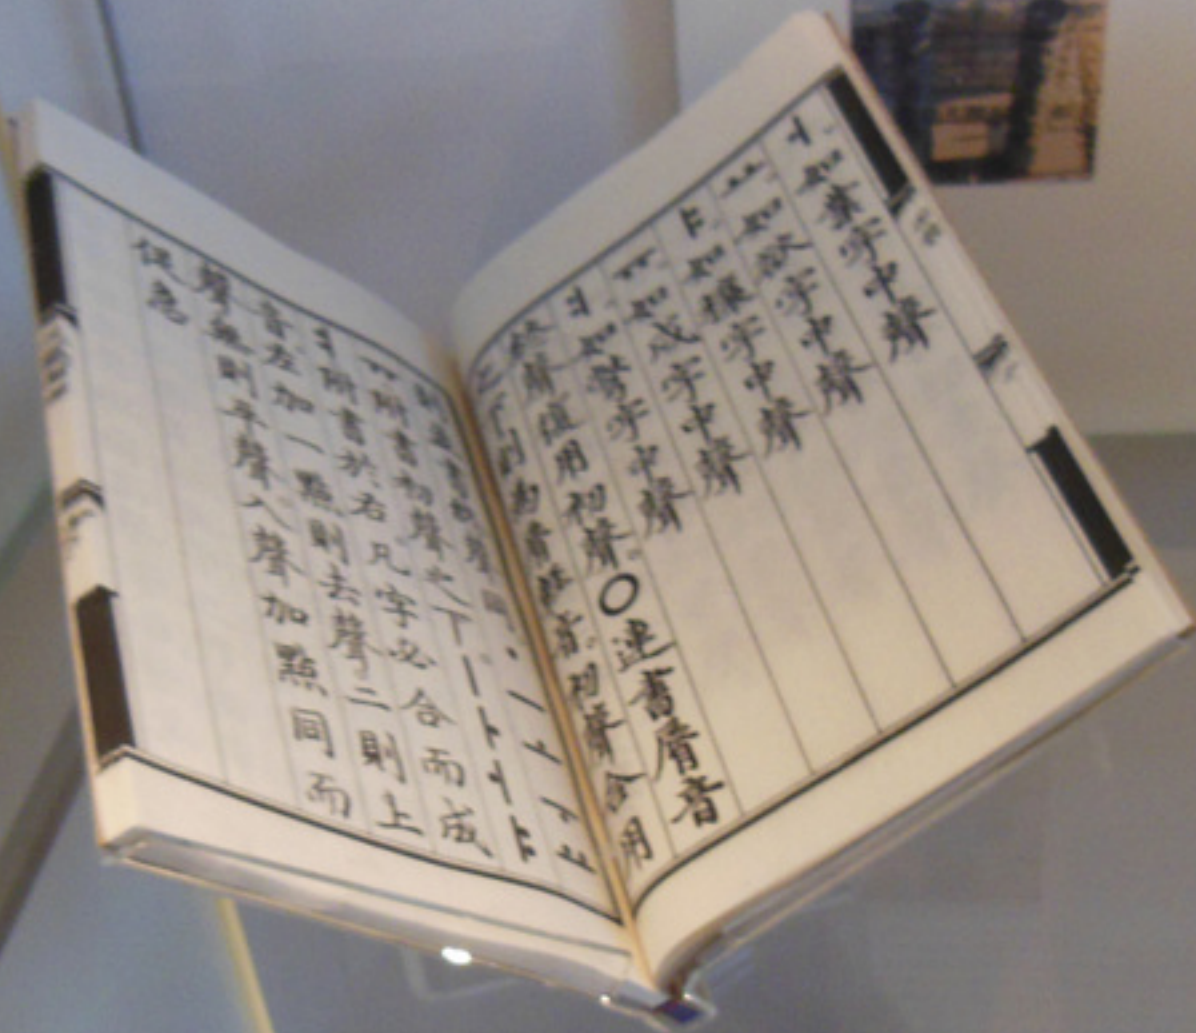 ㅓ。如業字中聲
ㅛ。如欲字中聲
ㅑ。如穰字中聲
ㅠ。如戌字中聲
ㅕ。如彆字中聲
終聲復用初聲。○連書脣音
之下。則爲脣輕音。初聲合用
則並書。終聲同。ㆍㅡㅗㅜㅛ
ㅠ。附書初聲之下。ㅣㅏㅓㅑ
ㅕ。附書於右。凡字必合而成
音。左加一點則去聲。二則上
聲。無則平聲。入聲加點同而
促急